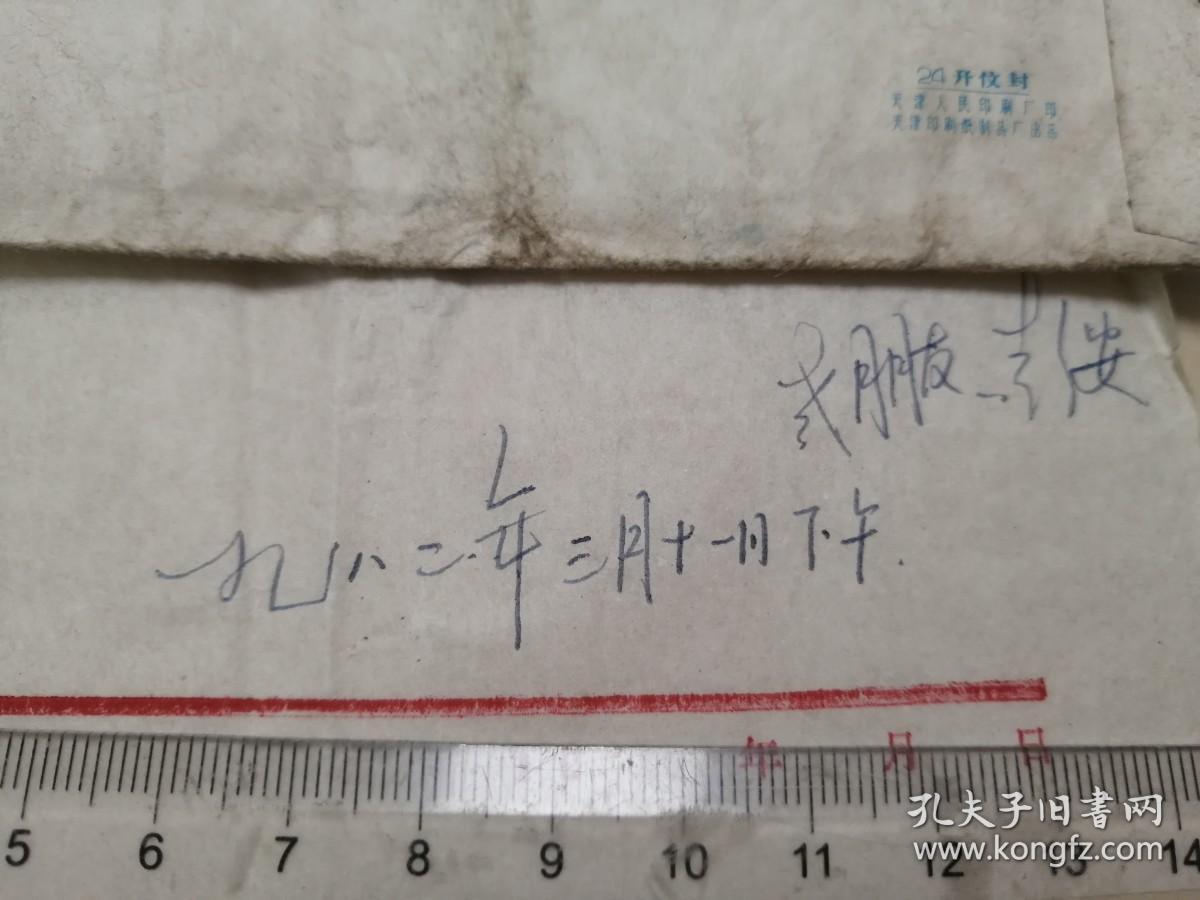 24开仗封
天津人民印刷厂印
天津印刷纸制品厂出品
朋友
九八二年三月十一日下午.
年 月 日
5 6 7 8 9 10 11 12 13 14
孔夫子旧书网
www.kongfz.com